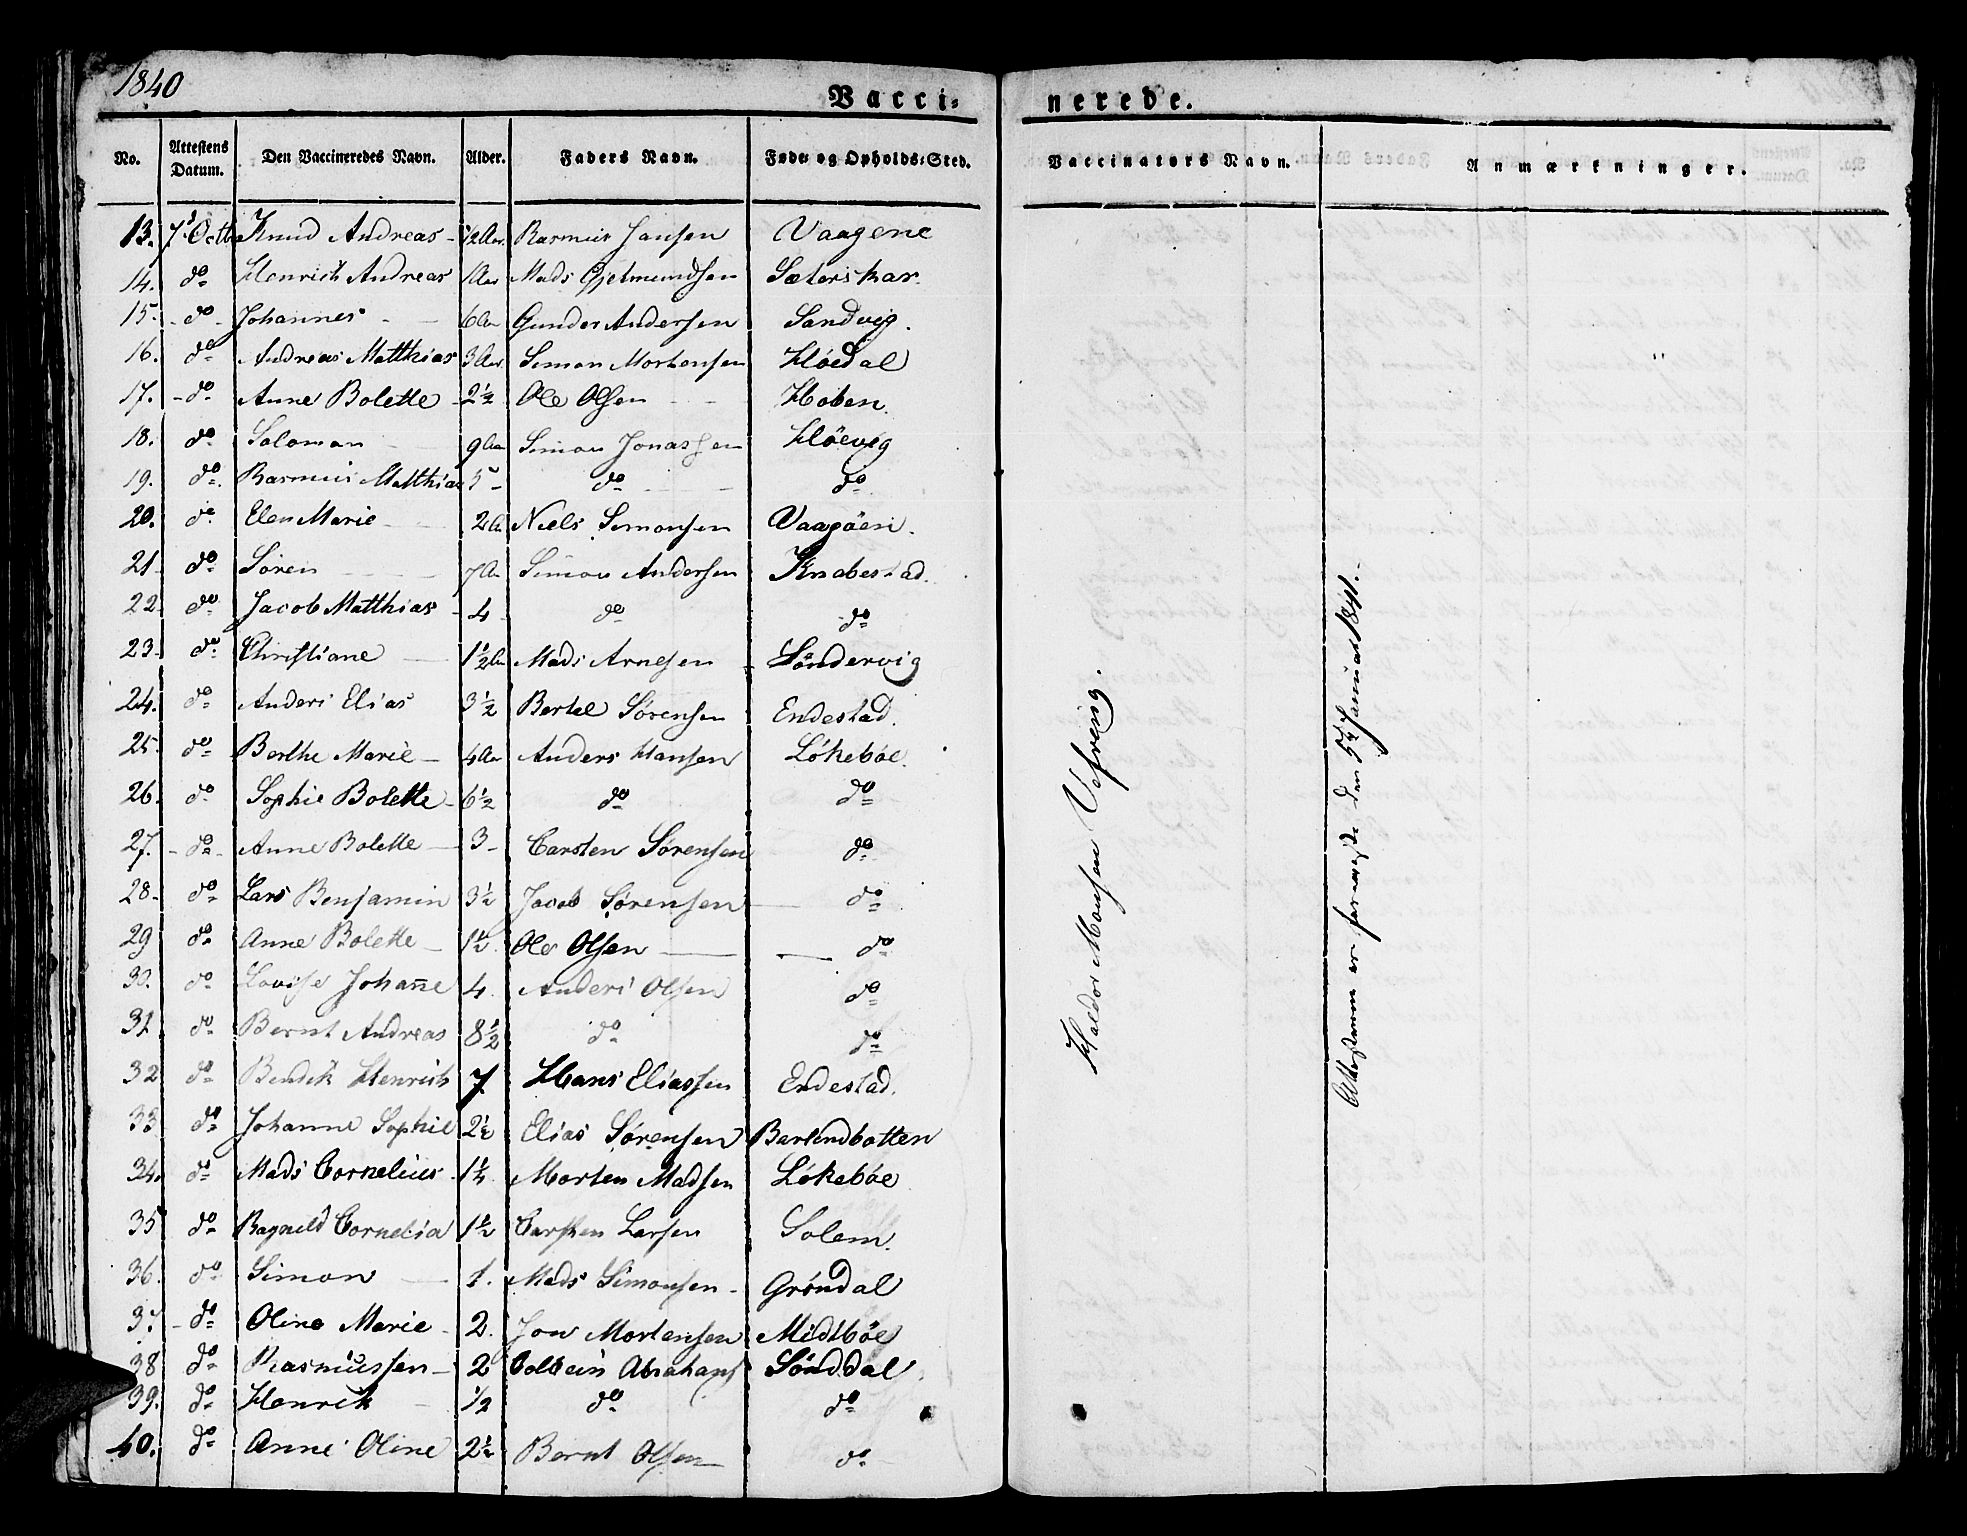 1840
Vacci-nerede.
No. Attestens Datum. Den Vaccineredes Navn. Alder. Faders Navn. Føde- og Opholds-Sted. Vaccinators Navn. Anmærkninger.
13. 7d Octb Knud Andreas - 12 Aar. Rasmus Jansen Vaagene
14. do Henrich Andreas 1 Aar Mads Gjetmundsen Sæterskar.
15. - do - Johannes - 6 Aar Gunder Andersen Sandvig.
16. do Andreas Matthias 3 Aar. Simon Mortensen Høedal
17. - do Anne Bolette - 2½ Ole Olsen - - Hoben.
18. do Salomon 9 Aar Simon Jonassen Høevig
19. do. Rasmus Matthias 5 - do do
20. do Elen Marie - 2 Aar Niels Simonsen Vaagöen.
21 do Sören 7 Aar Simon Andersen Knabestad.
22. do Jacob Matthias - 4 do do
23. do Christiane - 1½ Aar Mads Arnesen Söndervig
24. do Anders Elias 3½ Bertel Sörensen Endestad.
25. do Berthe Marie - 4 Aar Anders Hansen Lökebøe.
26. do Sophie Bolette - 6½ do do
27. - do - Anne Bolette - 3 - Carsten Sörensen do
28. do Lars Benjamin 3½ Jacob Sörensen do
29 do Anne Bolette - 1½ Ole Olsen - do
30. do Lovise Johan̄e 4. Anders Olsen do
31. do Bernt Andreas 8½ do do
32 do Bendik Henrich 7. Hans Eliassen Endestad.
33 do Johanne Sophie 2½ Elias Sörensen Barlindbotten
34. do Mads Cornelius 1½ Morten Madsen Lökebøe
35 do Ragnild Cornelia 1½ Carsten Larsen Solem.
36. do Simon - 1. Mads Simonsen - Gröndal
37 - do Oline Marie - 2. Jon Mortensen Midtbøe
38 do Rasmussen - 2 Colbein Abrahams Sönddal
39. do Henrik - ½ do do
40. do Anne Oline 2½ Bernt Olsen do
Haldor Monsen Vefring.
Attesterne er foreviiste den 5te Januar 1841.